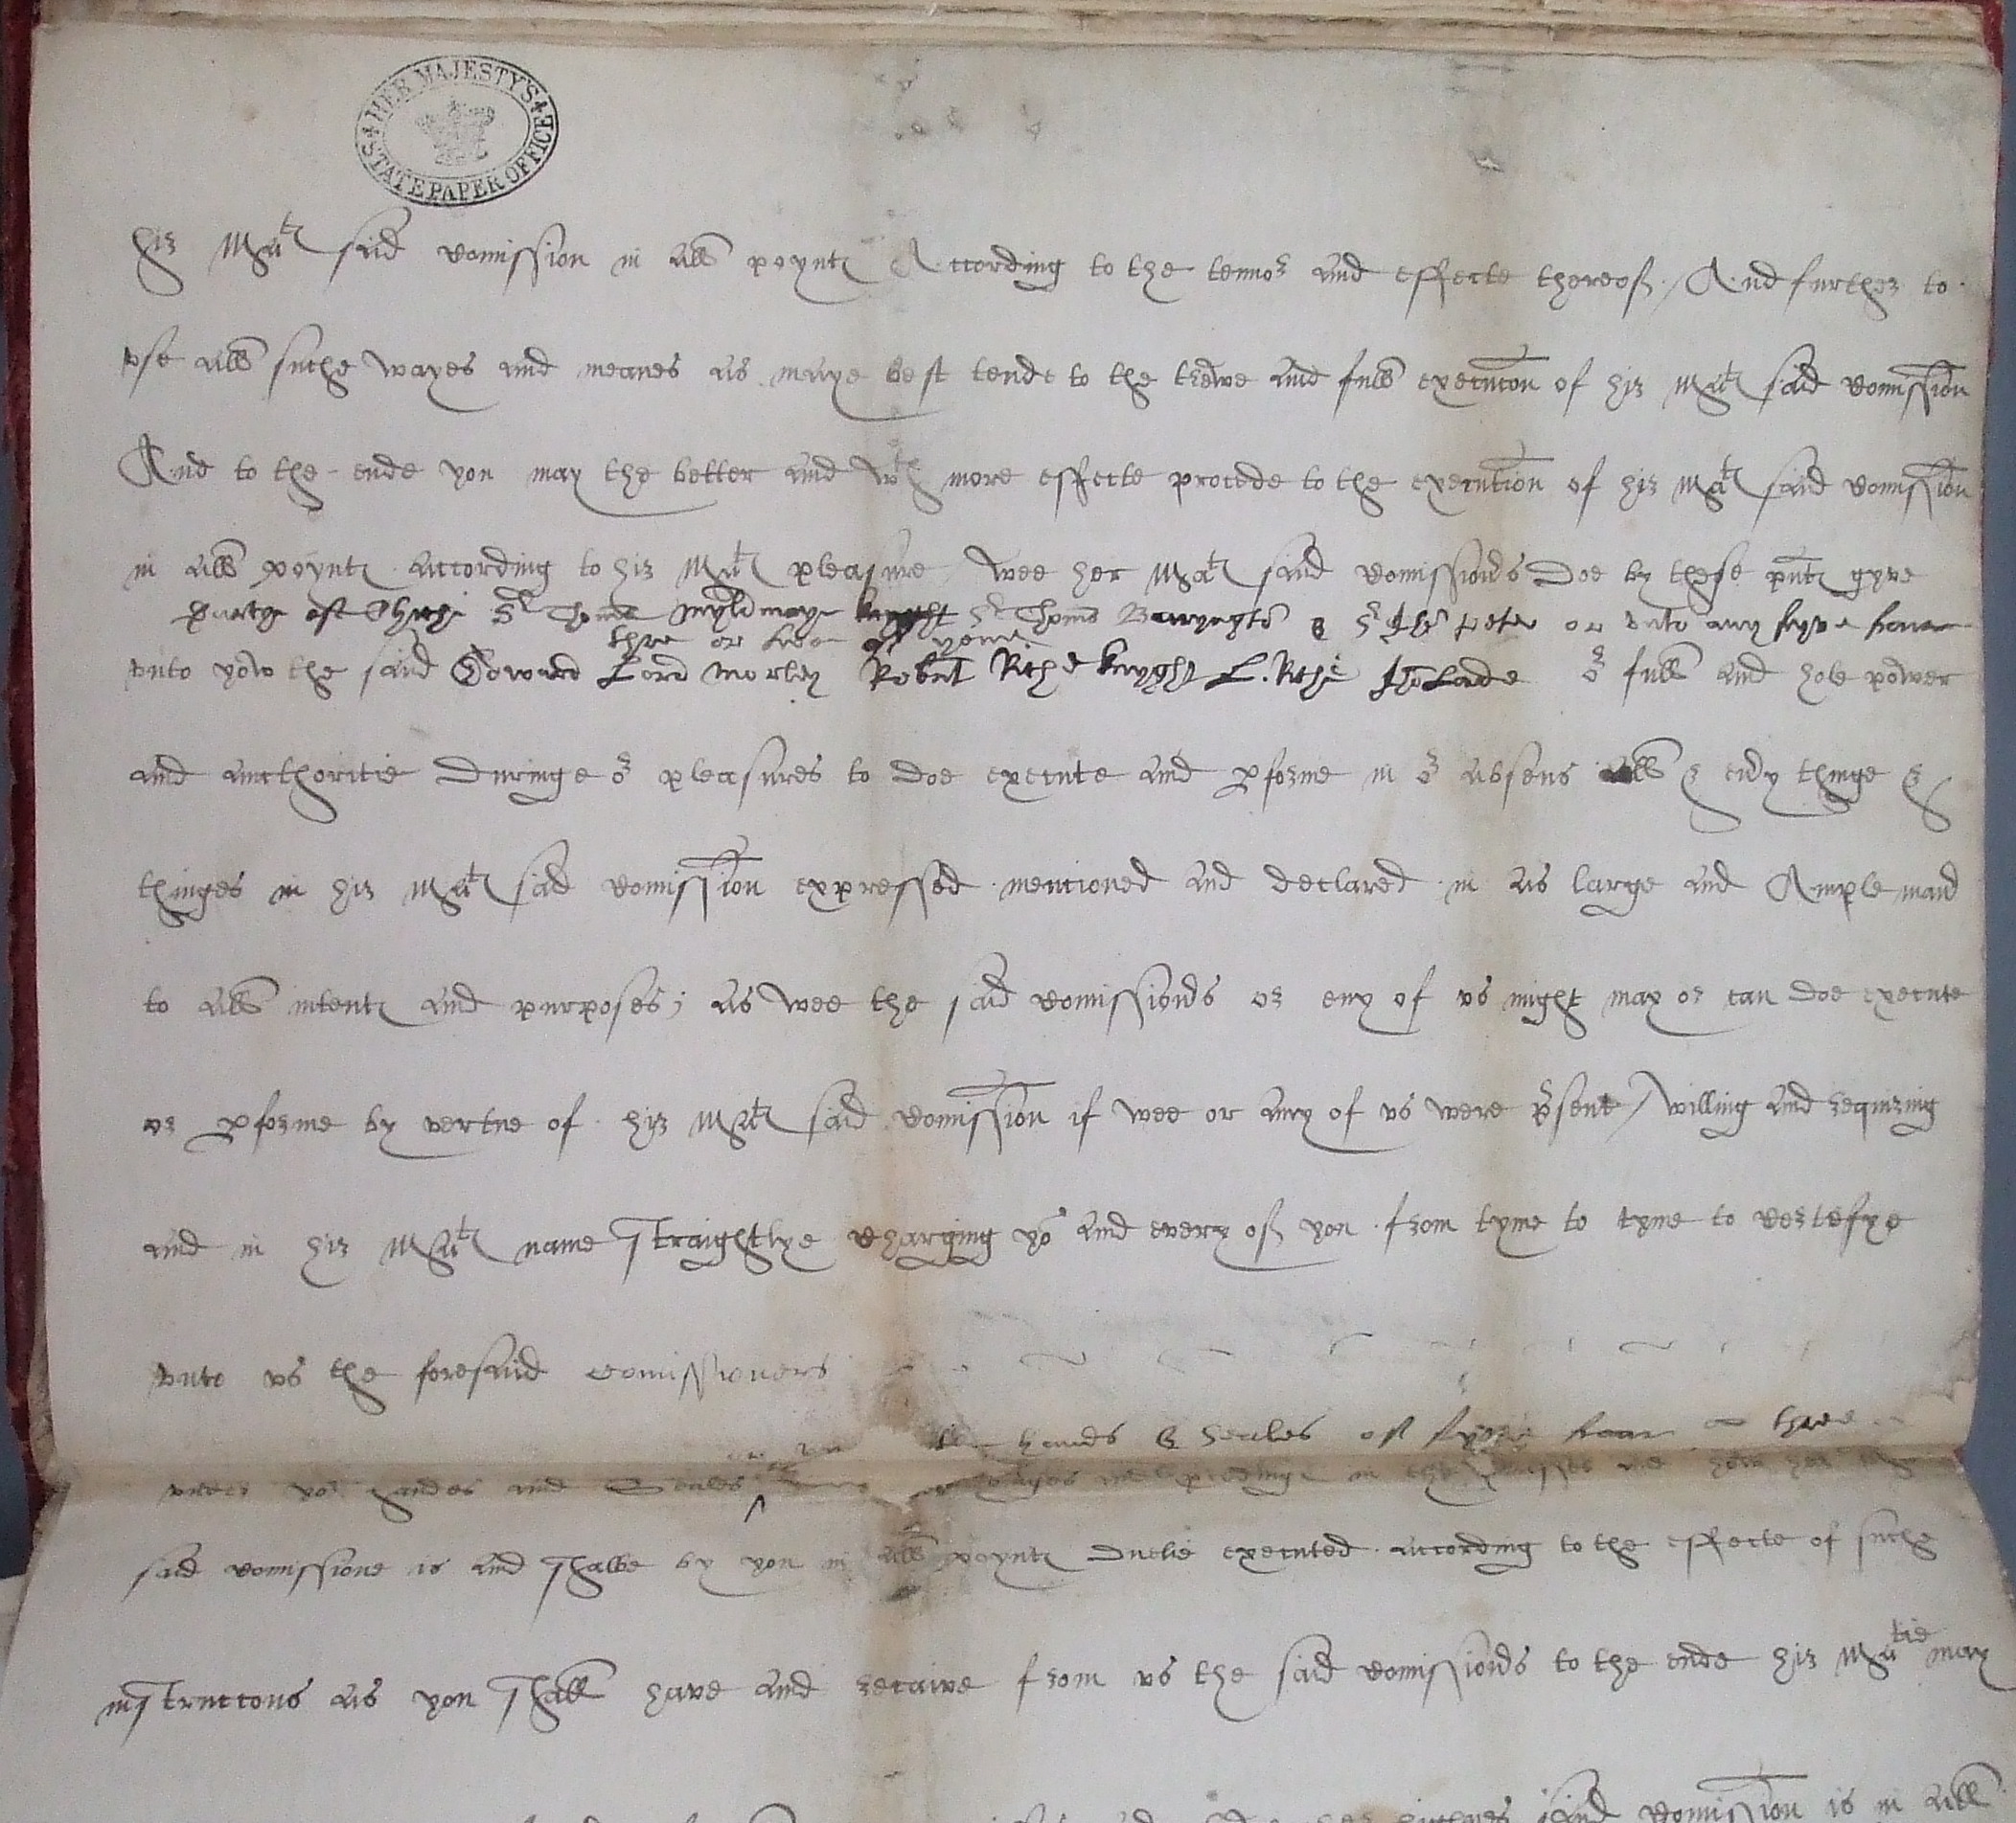 HER MAJESTY'S STATE PAPER OFFICE
his Matz said comission in all poyntz According to the tennor and effecte thereof / And further to
vse all suche wayes and meanes as maye best tende to the trewe and full execucon of his Matz said comission
And to the ende you may the better and wth more effecte procede to the execution of his Matz said comission
in all poyntz according to his Matz pleasure wee her Matz said comissionrs doe by these pntz gyve
Sr Thomas Myldmaye knyght Sr Thoms Barryngto & Sr Jhn Peter or vnto any fyve
thre or of youe
vnto yow the said Edward Lord Morley Robert Riche knyght L. Riche full and hole power
and aucthoritie duringe or pleasures to doe execute and pforme in or absens all & euy thinge &
thinges in his Matz said comission expressed mencioned and declared in as large and Ample manr
to all intentz and purposes; as wee the said comissionrs or eny of vs might may or can doe execute
or pforme by vertue of his Matz said comission if wee or any of vs were psent / willing and requiring
and in his Matz name straightlye charging yo and every of you from tyme to tyme to certefye
vnto vs the foresaid comissioners
hands & Seales of fyve or three
vnder yor handes and Seales in the
said comissione is and shalbe by you in all poyntz duelie executed according to the effecte of suche
instructons as you shall have and receive from vs the said comissionrs to the ende his Matie may
said comission is in all